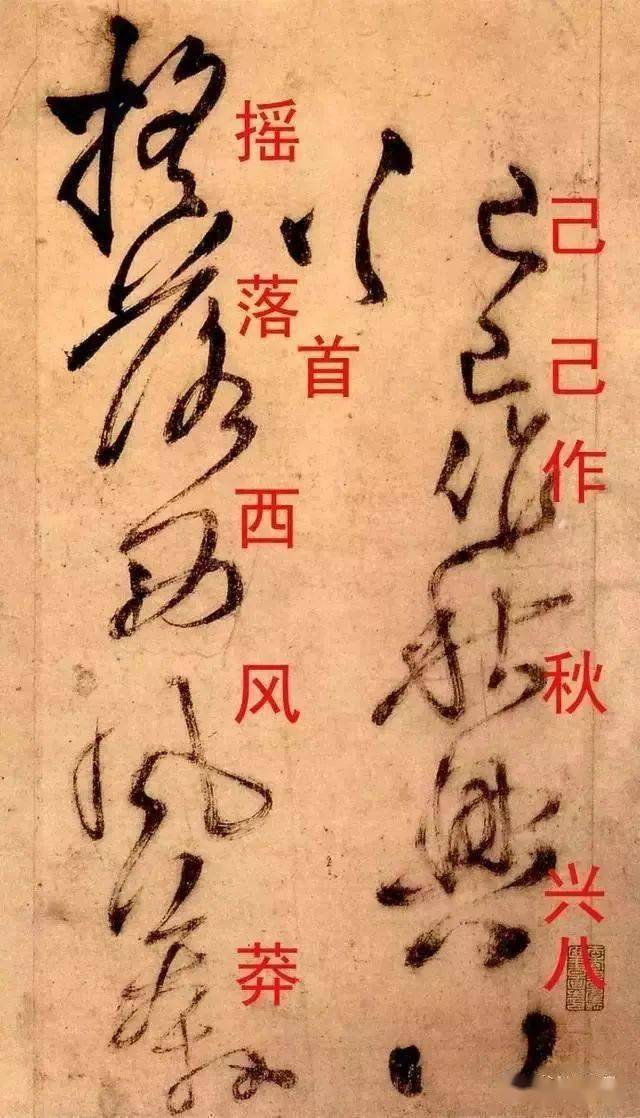 己己作秋兴八
首
摇落西风莽